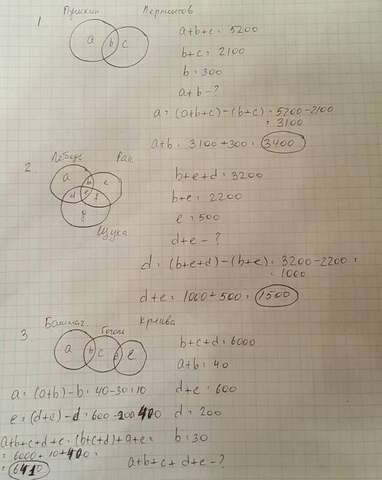 1
Пушкин Лермонтов
a b c
a+b+c = 5200
b+c = 2100
b = 300
a+b - ?
a = (a+b+c)-(b+c) = 5200-2100
= 3100
a+b = 3100+300 = 3400
2
Лебедь Рак
a b c
d e f
g
Щука
b+e+d = 3200
b+e = 2200
e = 500
d+e - ?
d = (b+e+d)-(b+e) = 3200-2200 =
= 1000
d+e = 1000+500 = 1500
3
Башмак Гоголя Крылова
a b c d e
b+c+d = 6000
a+b = 40
a = (a+b)-b = 40-30 = 10
d+e = 600
e = (d+e)-d = 600-200 400
d = 200
a+b+c+d+e = (b+c+d)+a+e =
b = 30
= 6000+10+400 =
= 6410
a+b+c+d+e - ?